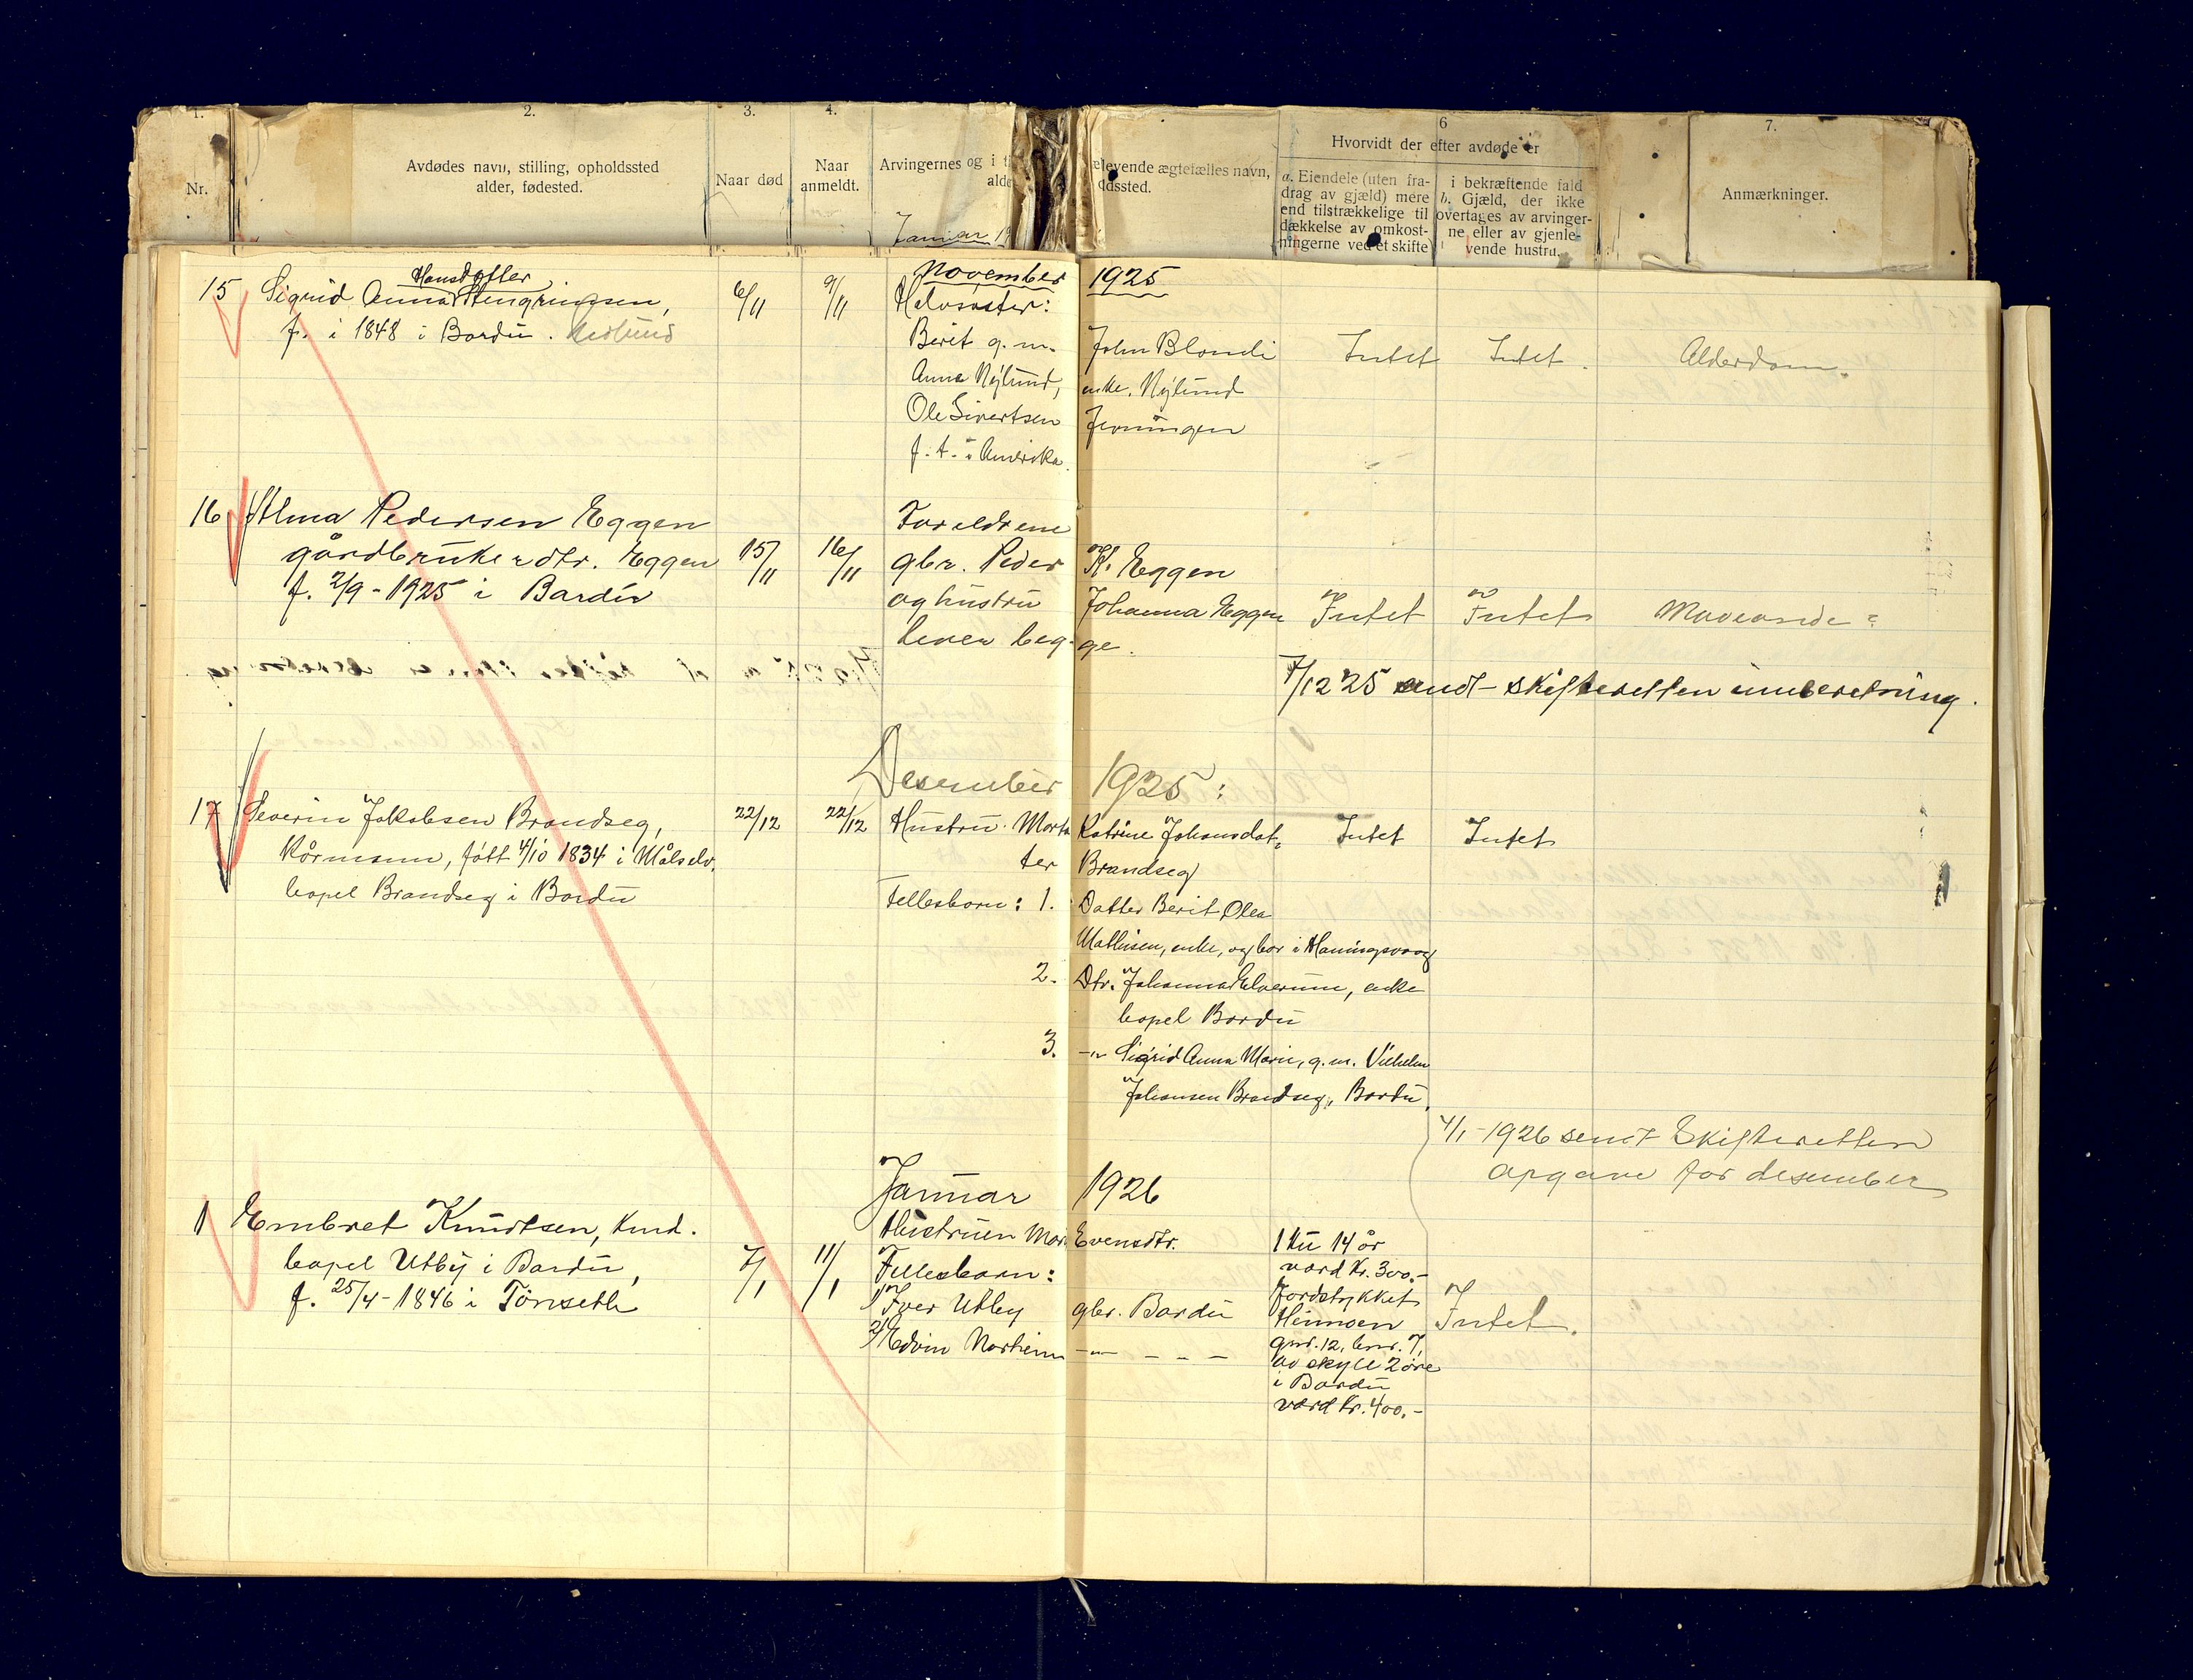 1.
2.
3.
4.
6
7.
Nr.
Avdødes navn, stilling, opholdssted
alder, fødested.
Naar død
Naar
anmeldt.
Arvingernes og i
elevende ægtefælles navn,
Hvorvidt der efter avdøde er
a. Eiendele (uten fra-
drag av gjæld) mere
end tilstrækkelige til
dækkelse av omkost-
ningerne ved et skifte
i bekræftende fald
b. Gjæld, der ikke
overtages av arvinger-
ne eller av gjenle-
vende hustru.
Anmærkninger.
Januar
November 1925
Hansdatter
15 Sigrid Anna 6/11 9/11 Halvsøster:
f. i 1848 i Bardu. Berit g.m. John Blondi Intet Intet. Alderdom.
Anna Nylund, enke, Nylund
Ole Sivertsen
f. t. i Amerika.
16 Alma Pedersen Eggen Foreldrene
gårdbrukerdtr. Eggen 15/11 16/11 gbr. Peder K. Eggen
f. 2/9-1925 i Bardu og hustru Johanna Eggen Intet Intet
lever beg- ge.
7/12 25 sendt skifteretten innberetning.
Desember 1925:
17 Severin Jakobsen Brandseg, 22/12 22/12 Hustru Marta Katrine Johansdat- Intet Intet
Kårmann, født 4/10 1834 i Målselv. ter Brandseg
bopel Brandseg i Bardu Fellesbarn: 1. Datter Berit Olea
Mathisen, enke, og bor i Honningsvaag
2. Dtr. Johanna Elverum, enke
bopel Bardu
3. -"- Sigrid Anna Marie, g.m. Vilhelm
Johansen Brandseg, Bardu.
4/1-1926 sendt Skifteretten
opgave for desember
Januar 1926
1 Embret Knudtsen, Hustruen Mari Evensdtr. 1 ku 14 år
bopel Utby i Bardu, 7/1 11/1 Fellesbarn: verd Kr. 300.-
f. 25/4-1846 i Tönseth 1) Iver Utby gbr. Bardu Jordstykket
Heimoen Intet.
2) Edvin Norheim -"- - - - gnr. 12, bnr. 7,
av skyld 2 øre
i Bardu
verd Kr. 400.-